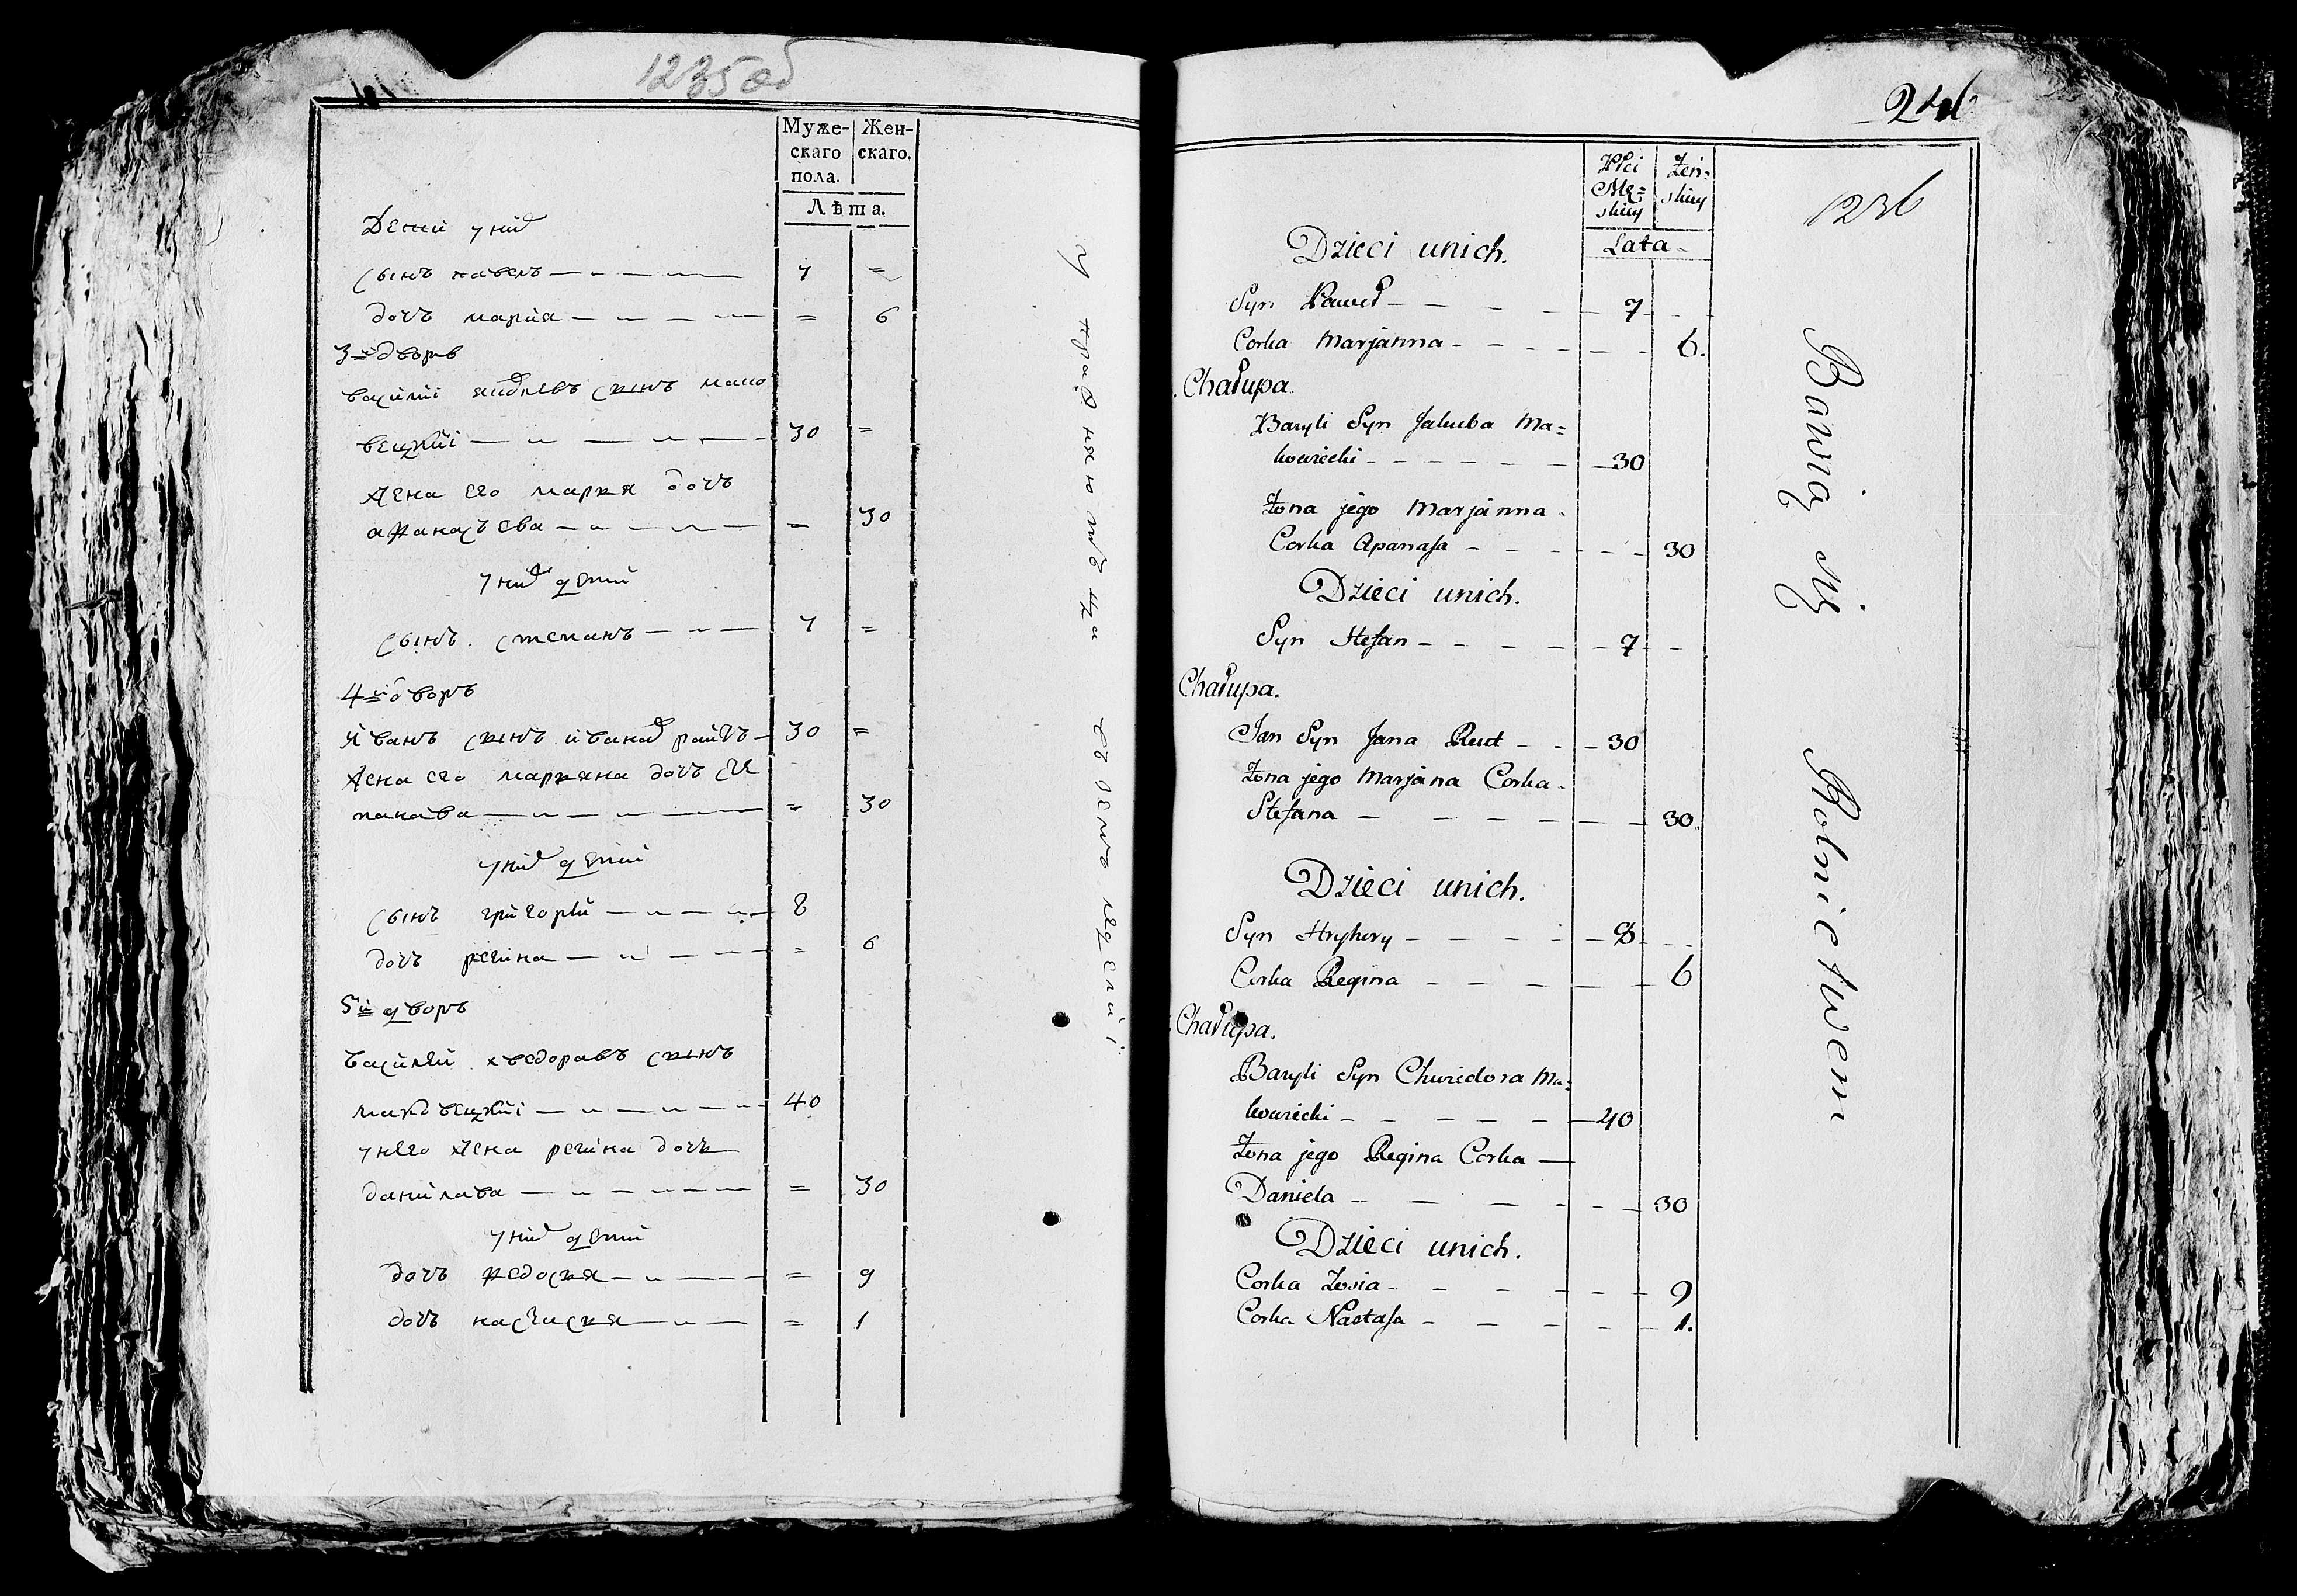 1235об
Муже- Жен-
скаго скаго.
пола.
Лѣта.
Дети у них
сынъ павелъ — 7 =
дочъ мария — = 6
3й дворъ
василий
вецкиі — 30 =
жена его маръя дочъ
афанасъева — = 30
у них дети
сынъ степанъ — 7 =
4й дворъ
иванъ сынъ ивана — 30 =
жена его маръяна дочъ сте
панава — = 30
у них дети
сынъ григорій — 8
дочъ регина — = 6
5й дворъ
василей хведоравъ сынъ
маковецкиі — 40
у него жена регина дочъ
данилава — = 30
у них дети
дочъ федосъя — = 9
дочъ — = 1
246
1236
Płci Żeń-
Mę= skiey
skiey
Lata
Dzieci unich.
Syn Paweł — 7
Corka Marjanna — 6.
Chałupa.
Bazyli Syn Jakuba Ma=
kowiecki — 30
Żona jego Marjanna
Corka Apanasa — 30
Dzieci unich.
Syn Stefan — 7
Chałupa.
Jan Syn Jana Rut — 30
Żona jego Marjana Corka
Stefana — 30
Dzieci unich.
Syn Hryhory — 8
Corka Regina — 6
Chałupa.
Bazyli Syn Chwiedora Ma=
kowiecki — 40
Żona jego Regina Corka
Daniela — 30
Dzieci unich.
Corka Zosia — 9
Corka Nastasa — 1.
Bawią się Rolnictwem